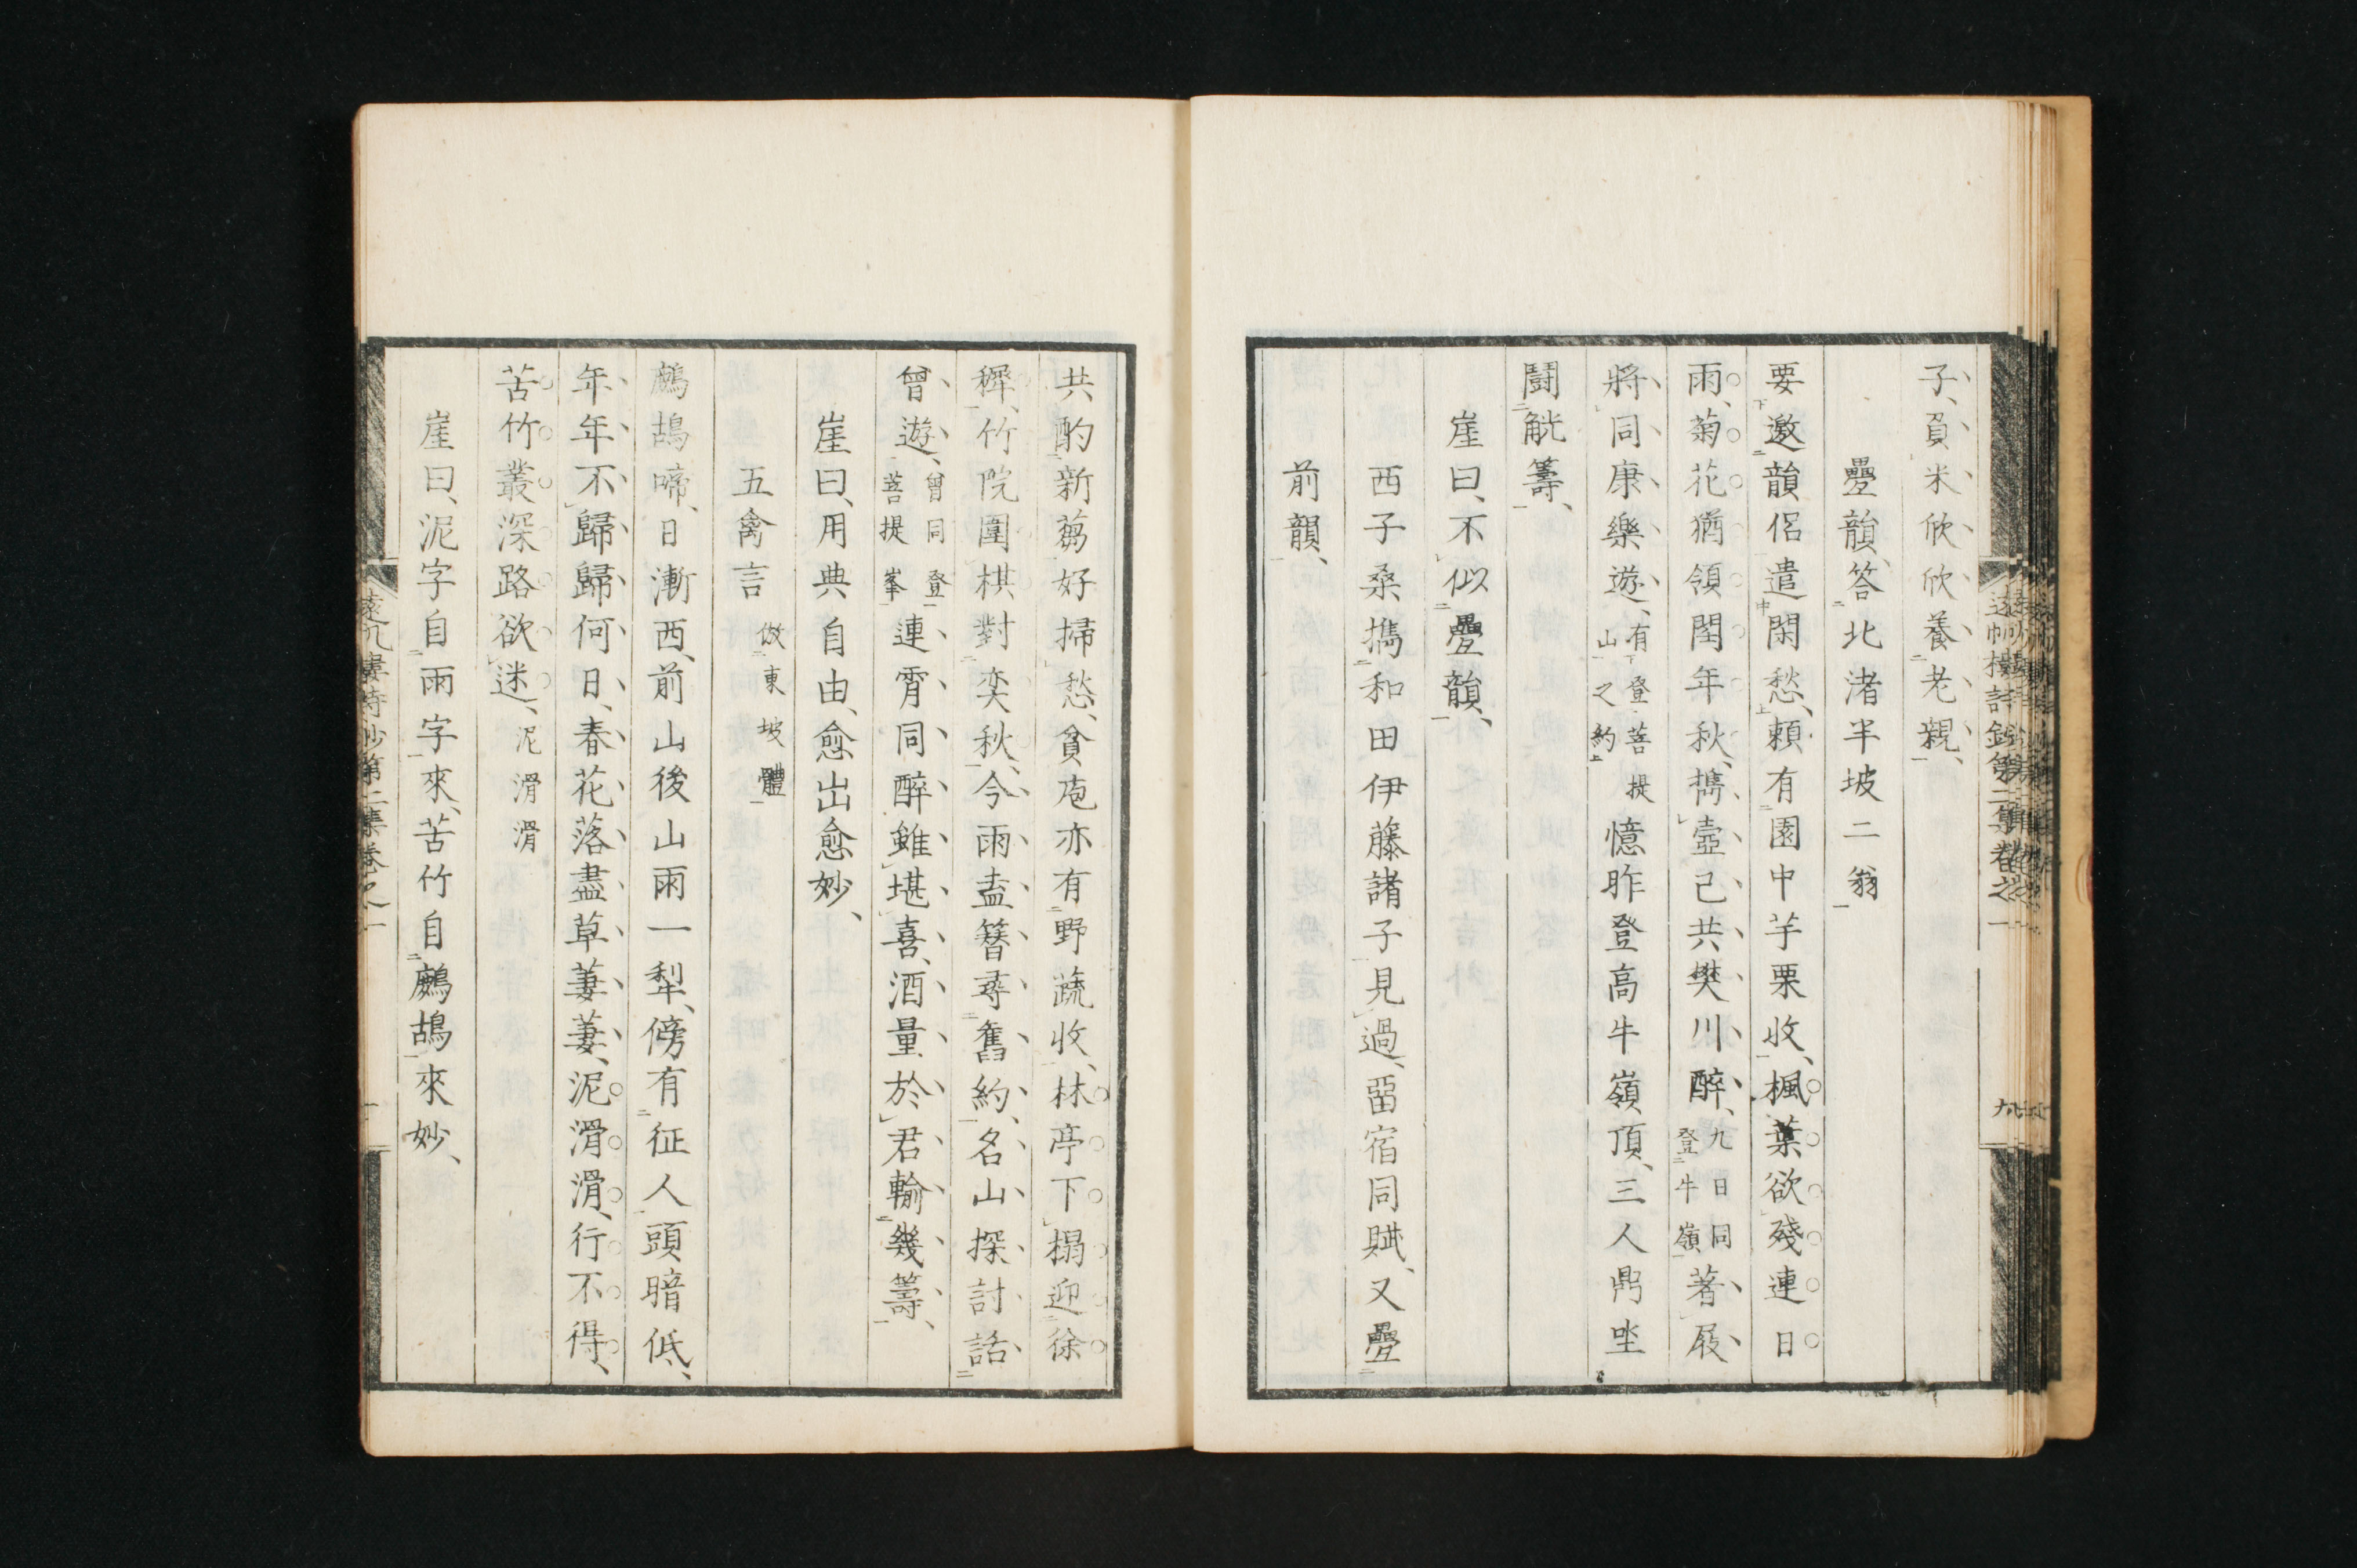 子、負米欣欣養老親、
疊韻、答北渚半坡二翁
要邀韻侶遣閑愁、頼有園中芋栗收、楓葉欲殘連日
雨、菊花猶領閏年秋、携壺已共樊川醉、九日同登牛嶺著屐
將同康樂遊、有登菩提山之約憶昨登高牛嶺頂、三人鼎坐
鬪觥籌、
崖曰、不似疊韻、
西子桑攜和田伊藤諸子見過、畱宿同賦、又疊
前韻、
共酌新篘好掃愁、貧庖亦有野蔬收、林亭下榻迎徐
穉、竹院圍棋對奕秋、今雨盍簪尋舊約、名山探討話
曾遊、曾同登菩提峯連霄同醉雖堪喜、酒量於君輸幾籌、
崖曰、用典自由、愈出愈妙、
五禽言 倣東坡體
鷓鴣啼、日漸西、前山後山雨一犁、傍有征人頭暗低、
年年不歸歸何日、春花落盡草萋萋、泥滑滑、行不得、
苦竹叢深路欲迷、泥滑滑
崖曰、泥字自雨字來、苦竹自鷓鴣來妙、